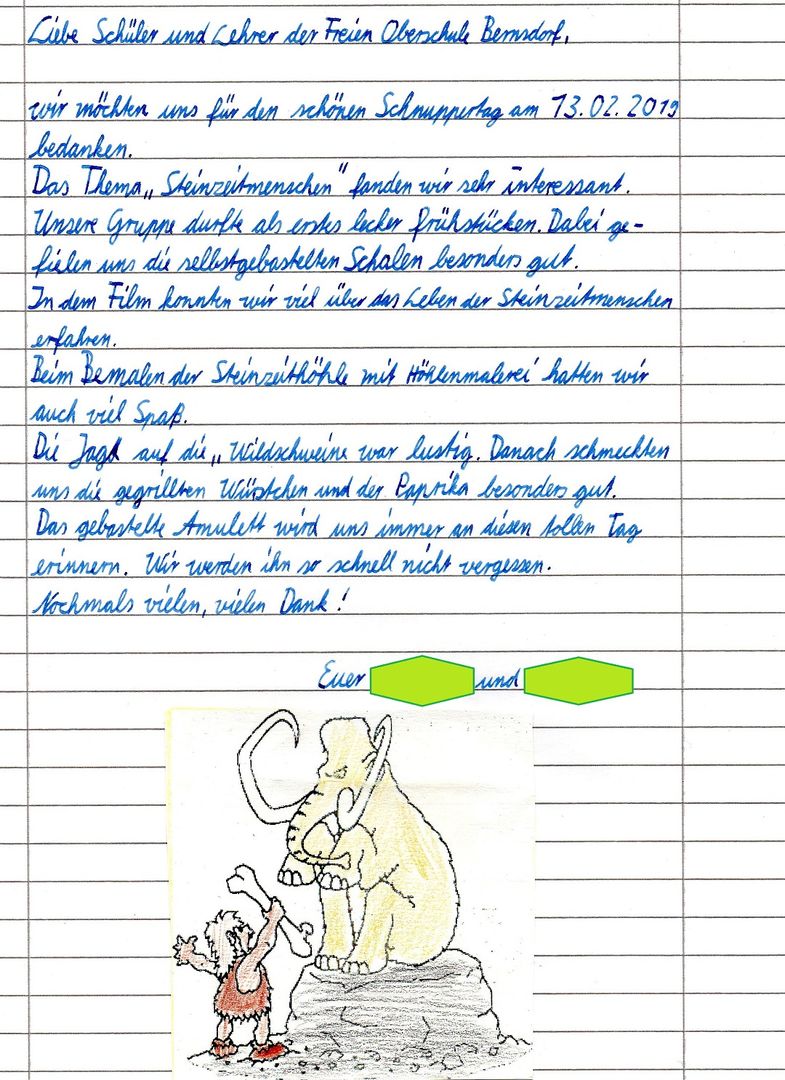 Liebe Schüler und Lehrer der Freien Oberschule Bernsdorf,
wir möchten uns für den schönen Schnuppertag am 13.02.2019
bedanken.
Das Thema „Steinzeitmenschen" fanden wir sehr interessant.
Unsere Gruppe durfte als erstes lecker frühstücken. Dabei ge-
fielen uns die selbstgebastelten Schalen besonders gut.
In dem Film konnten wir viel über das Leben der Steinzeitmenschen
erfahren.
Beim Bemalen der Steinzeithöhle mit Höhlenmalerei hatten wir
auch viel Spaß.
Die Jagd auf die „Wildschweine war lustig. Danach schmeckten
uns die gegrillten Würstchen und der Paprika besonders gut.
Das gebastelte Amulett wird uns immer an diesen tollen Tag
erinnern. Wir werden ihn so schnell nicht vergessen.
Nochmals vielen, vielen Dank!
Euer und